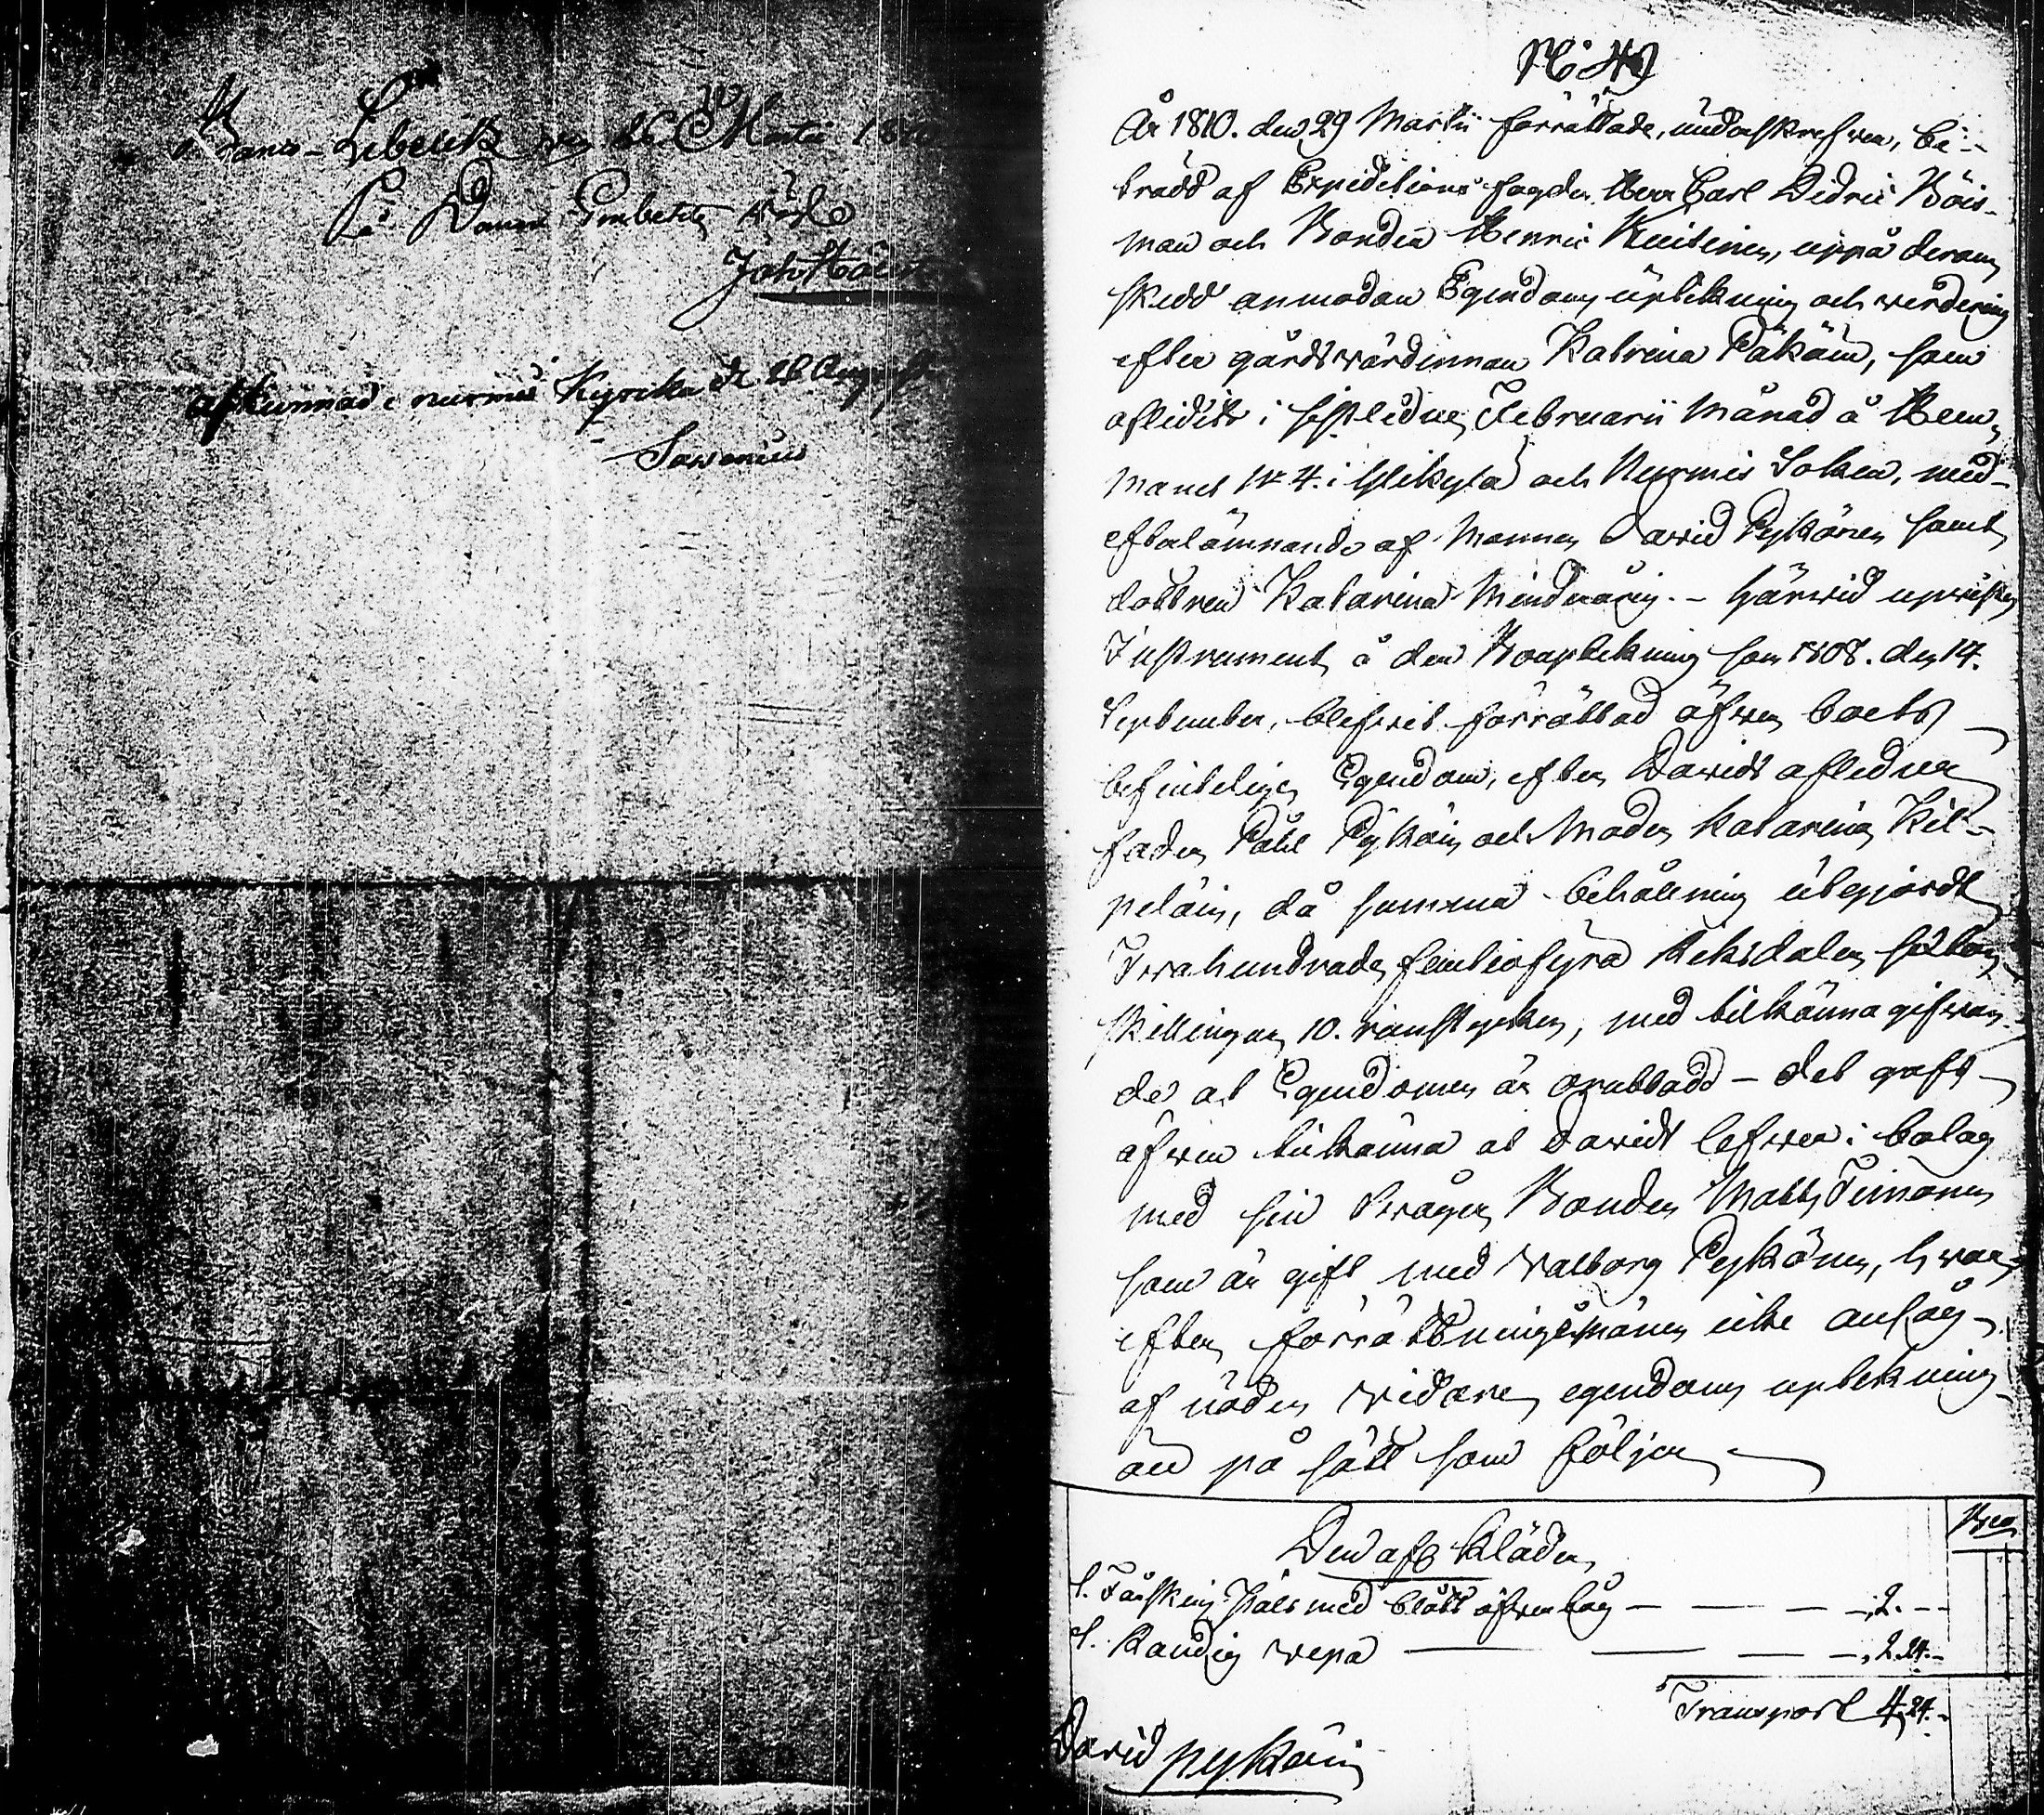 Libelitz d. 26 Martii 1810
På Domare Embetets vägnar
Afkunnad i nurmis Kyrcka d 28 August
Sawenius
No 49
År 1810. den 29 Martii förrättade, undertecknad, bi-
trädd af Expeditions fogden Herr Carl Dedric Böis-
man och Bonden Henric Kuitinen, uppå derom
skedd anmodan Egendoms upteckning och verdering
efter gårdswärdinnan Katrina Päkäin, som
aflidit i sistledne Februarii Månad å Hem-
manet No 4. i och Nurmis Sokn, med
efterlämnande af Mannen David Pykänen samt
dottren Katarina Minderårig. - härvid upvistes
Instrument å den Bouptekning som 1808. den 14.
September, blifvit förrättad öfwer boets
befinteliga Egendom, efter Davids aflidne
fader Påhl Pykäin och Moder Katarina Kil-
peläin, då samma behållning utgjordt
Tvåhundrade femtiofyra Riksdaler
skillingar 10. runstycken, med tilkänna gifvan-
de at Egendomen är orubbadd - det gafs
äfven tilkänna at David lefver i bolag
med sin Svåger Bonden Matts Timonen
som är gift med Valborg Pykänen, hvar-
efter förrättningsmännen icke ansåg
af nöden vidare egendoms uptekning
än på sätt som följer
Den afl. Kläder
1. Fårskins Päls med blått öfwertåg - - - - 2. - -
1. Randig wepa - - - - 2.24. -
Transport 4.24. -
David pykäin